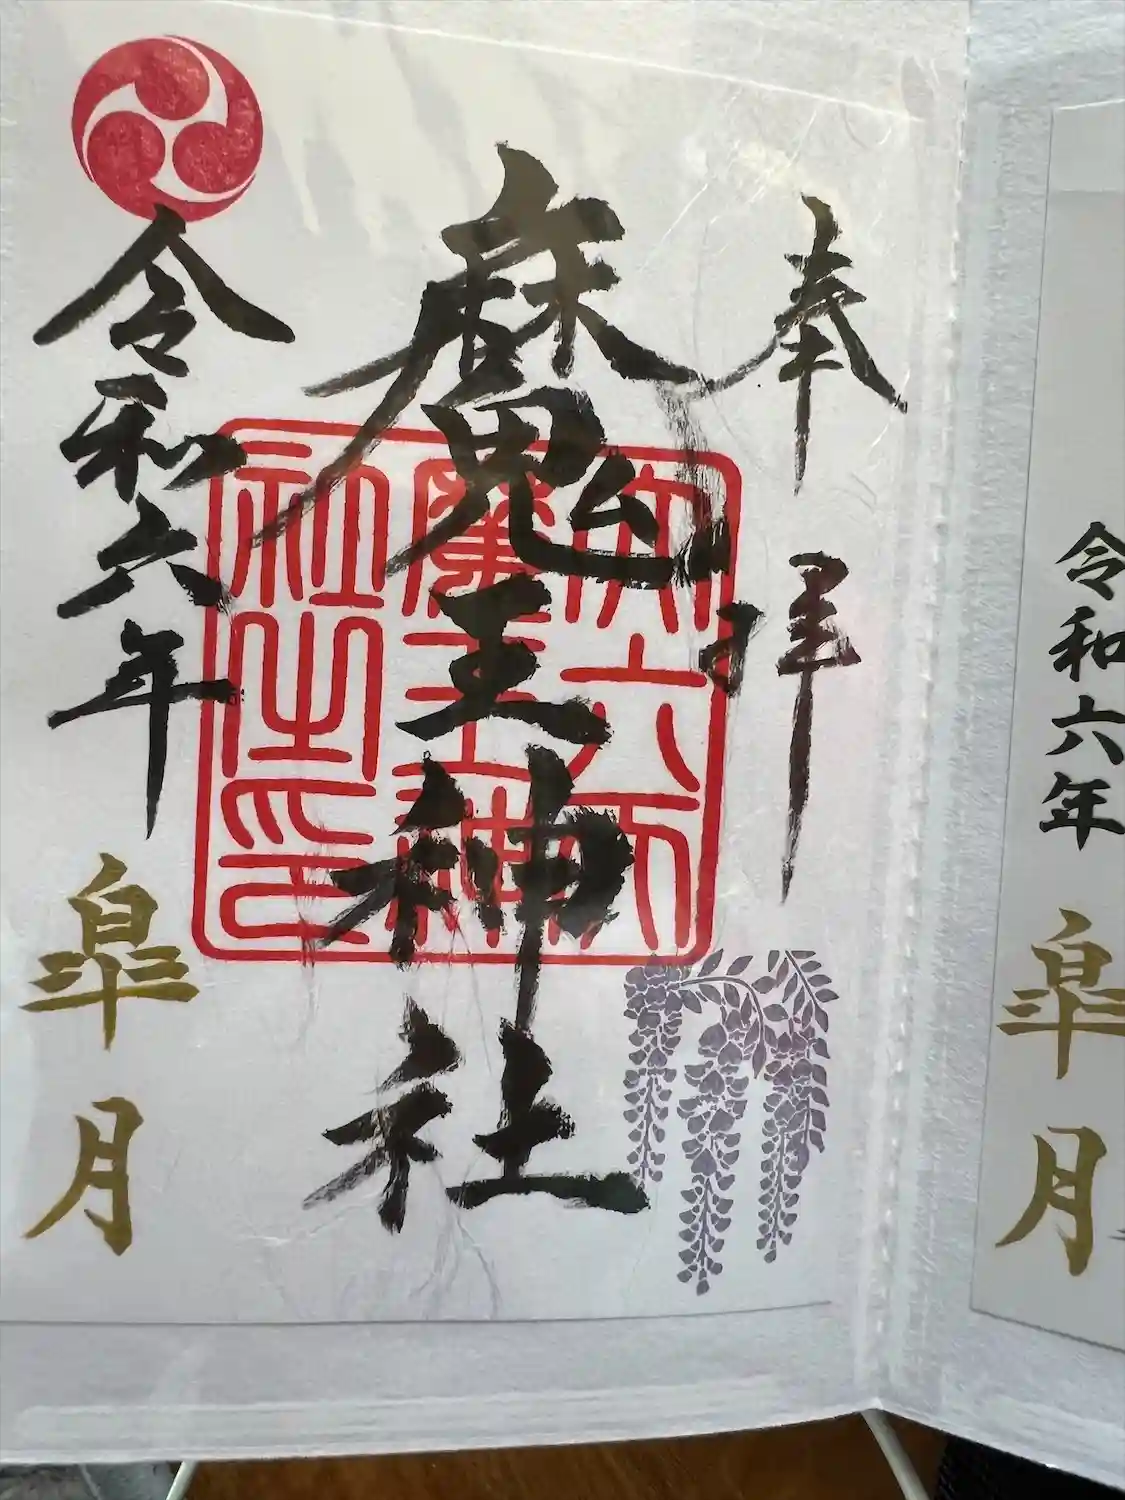 令和六年
皐月
奉拝
魔王神社
六天
魔王神
社之印
令和六年
皐月